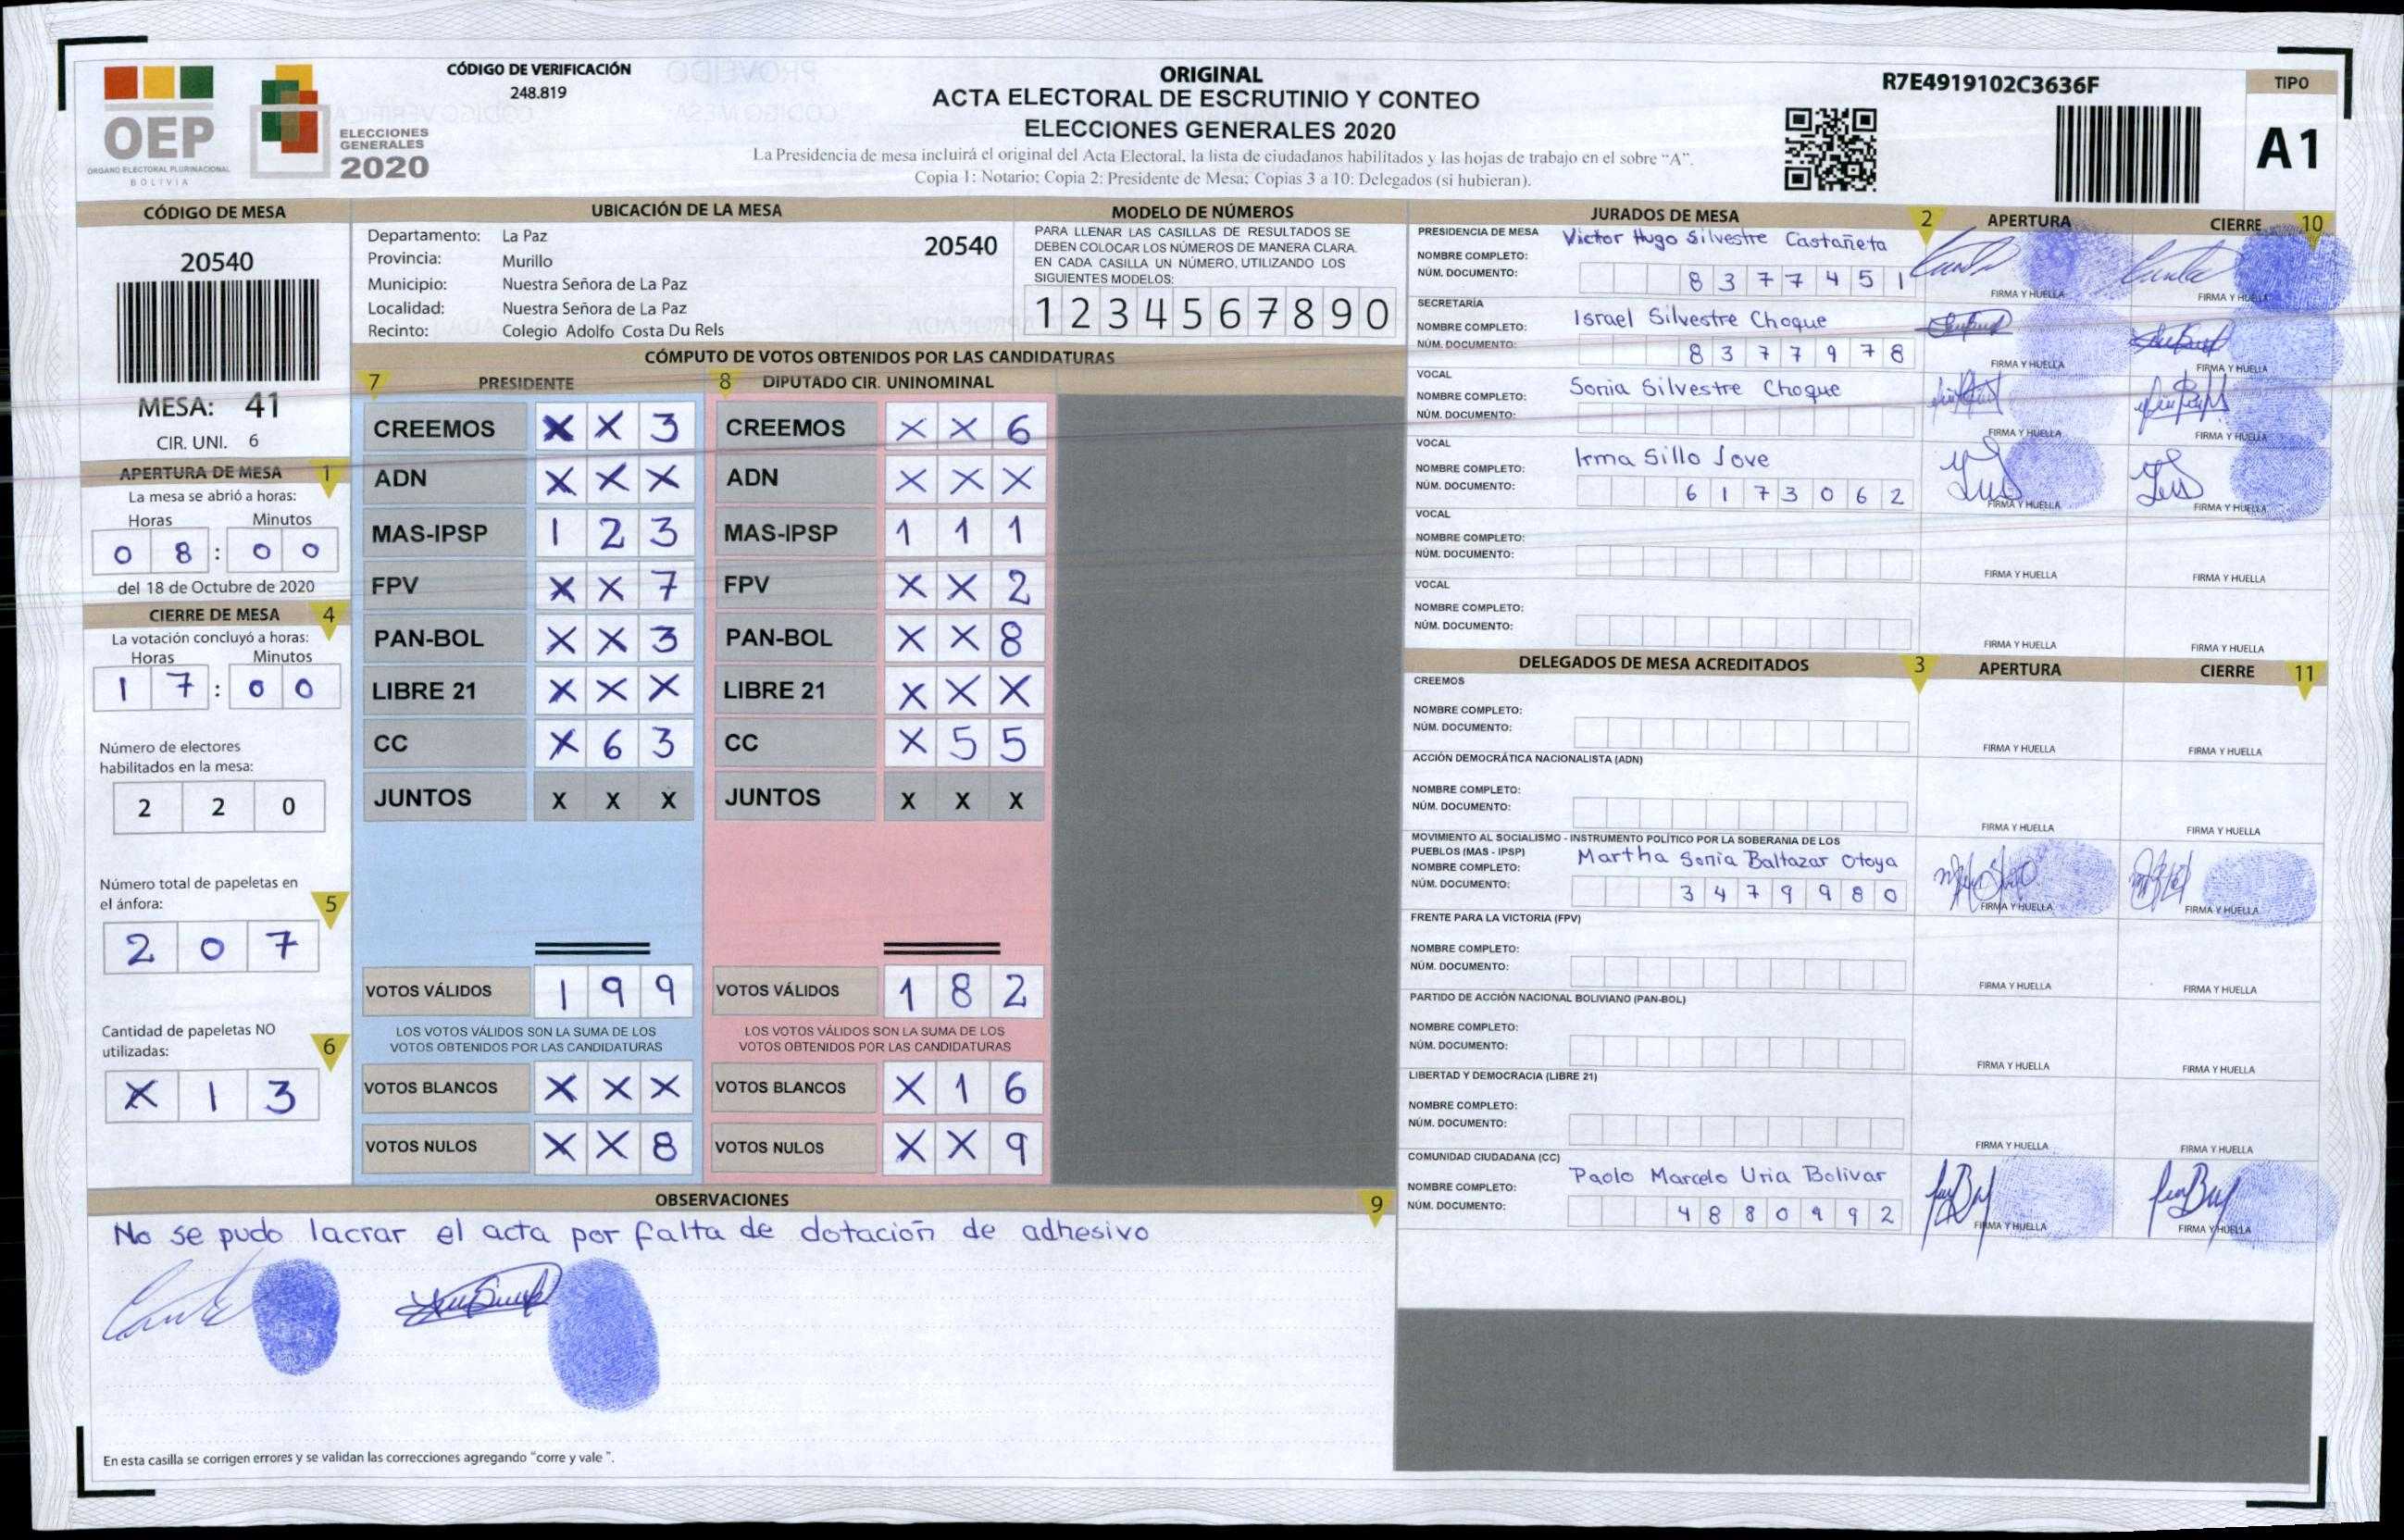 CÓDIGO DE VERIFICACIÓN
248.819
OEP
ÓRGANO ELECTORAL PLURINACIONAL
BOLIVIA
ELECCIONES
GENERALES
2020
ORIGINAL
ACTA ELECTORAL DE ESCRUTINIO Y CONTEO
ELECCIONES GENERALES 2020
La Presidencia de mesa incluirá el original del Acta Electoral, la lista de ciudadanos habilitados y las hojas de trabajo en el sobre "A".
Copia 1: Notario; Copia 2: Presidente de Mesa; Copias 3 a 10: Delegados (si hubieran).
R7E4919102C3636F
TIPO
A1
CÓDIGO DE MESA
20540
MESA: 41
CIR. UNI. 6
APERTURA DE MESA 1
La mesa se abrió a horas:
Horas Minutos
0 8 : 0 0
del 18 de Octubre de 2020
CIERRE DE MESA 4
La votación concluyó a horas:
Horas Minutos
1 7 : 0 0
Número de electores
habilitados en la mesa:
2 2 0
Número total de papeletas en
el ánfora: 5
2 0 7
Cantidad de papeletas NO
utilizadas: 6
X 1 3
UBICACIÓN DE LA MESA
Departamento: La Paz 20540
Provincia: Murillo
Municipio: Nuestra Señora de La Paz
Localidad: Nuestra Señora de La Paz
Recinto: Colegio Adolfo Costa Du Rels
MODELO DE NÚMEROS
PARA LLENAR LAS CASILLAS DE RESULTADOS SE
DEBEN COLOCAR LOS NÚMEROS DE MANERA CLARA.
EN CADA CASILLA UN NÚMERO, UTILIZANDO LOS
SIGUIENTES MODELOS:
1 2 3 4 5 6 7 8 9 0
CÓMPUTO DE VOTOS OBTENIDOS POR LAS CANDIDATURAS
7 PRESIDENTE 8 DIPUTADO CIR. UNINOMINAL
CREEMOS X X 3 CREEMOS X X 6
ADN X X X ADN X X X
MAS-IPSP 1 2 3 MAS-IPSP 1 1 1
FPV X X 7 FPV X X 2
PAN-BOL X X 3 PAN-BOL X X 8
LIBRE 21 X X X LIBRE 21 X X X
CC X 6 3 CC X 5 5
JUNTOS X X X JUNTOS X X X
VOTOS VÁLIDOS 1 9 9 VOTOS VÁLIDOS 1 8 2
LOS VOTOS VÁLIDOS SON LA SUMA DE LOS LOS VOTOS VÁLIDOS SON LA SUMA DE LOS
VOTOS OBTENIDOS POR LAS CANDIDATURAS VOTOS OBTENIDOS POR LAS CANDIDATURAS
VOTOS BLANCOS X X X VOTOS BLANCOS X 1 6
VOTOS NULOS X X 8 VOTOS NULOS X X 9
OBSERVACIONES 9
No se pudo lacrar el acta por falta de dotación de adhesivo
En esta casilla se corrigen errores y se validan las correcciones agregando "corre y vale ".
JURADOS DE MESA 2 APERTURA CIERRE 10
PRESIDENCIA DE MESA
NOMBRE COMPLETO: Victor Hugo Silvestre Castañeta
NÚM. DOCUMENTO: 8 3 7 7 4 5 1
FIRMA Y HUELLA FIRMA Y HUELLA
SECRETARÍA
NOMBRE COMPLETO: Israel Silvestre Choque
NÚM. DOCUMENTO: 8 3 7 7 9 7 8
FIRMA Y HUELLA FIRMA Y HUELLA
VOCAL
NOMBRE COMPLETO: Sonia Silvestre Choque
NÚM. DOCUMENTO:
FIRMA Y HUELLA FIRMA Y HUELLA
VOCAL
NOMBRE COMPLETO: Irma Sillo Jove
NÚM. DOCUMENTO: 6 1 7 3 0 6 2
FIRMA Y HUELLA FIRMA Y HUELLA
VOCAL
NOMBRE COMPLETO:
NÚM. DOCUMENTO:
FIRMA Y HUELLA FIRMA Y HUELLA
VOCAL
NOMBRE COMPLETO:
NÚM. DOCUMENTO:
FIRMA Y HUELLA FIRMA Y HUELLA
DELEGADOS DE MESA ACREDITADOS 3 APERTURA CIERRE 11
CREEMOS
NOMBRE COMPLETO:
NÚM. DOCUMENTO:
FIRMA Y HUELLA FIRMA Y HUELLA
ACCIÓN DEMOCRÁTICA NACIONALISTA (ADN)
NOMBRE COMPLETO:
NÚM. DOCUMENTO:
FIRMA Y HUELLA FIRMA Y HUELLA
MOVIMIENTO AL SOCIALISMO - INSTRUMENTO POLÍTICO POR LA SOBERANIA DE LOS
PUEBLOS (MAS - IPSP)
NOMBRE COMPLETO: Martha Sonia Baltazar Otoya
NÚM. DOCUMENTO: 3 4 7 9 9 8 0
FIRMA Y HUELLA FIRMA Y HUELLA
FRENTE PARA LA VICTORIA (FPV)
NOMBRE COMPLETO:
NÚM. DOCUMENTO:
FIRMA Y HUELLA FIRMA Y HUELLA
PARTIDO DE ACCIÓN NACIONAL BOLIVIANO (PAN-BOL)
NOMBRE COMPLETO:
NÚM. DOCUMENTO:
FIRMA Y HUELLA FIRMA Y HUELLA
LIBERTAD Y DEMOCRACIA (LIBRE 21)
NOMBRE COMPLETO:
NÚM. DOCUMENTO:
FIRMA Y HUELLA FIRMA Y HUELLA
COMUNIDAD CIUDADANA (CC)
NOMBRE COMPLETO: Paolo Marcelo Uria Bolivar
NÚM. DOCUMENTO: 4 8 8 0 9 9 2
FIRMA Y HUELLA FIRMA Y HUELLA